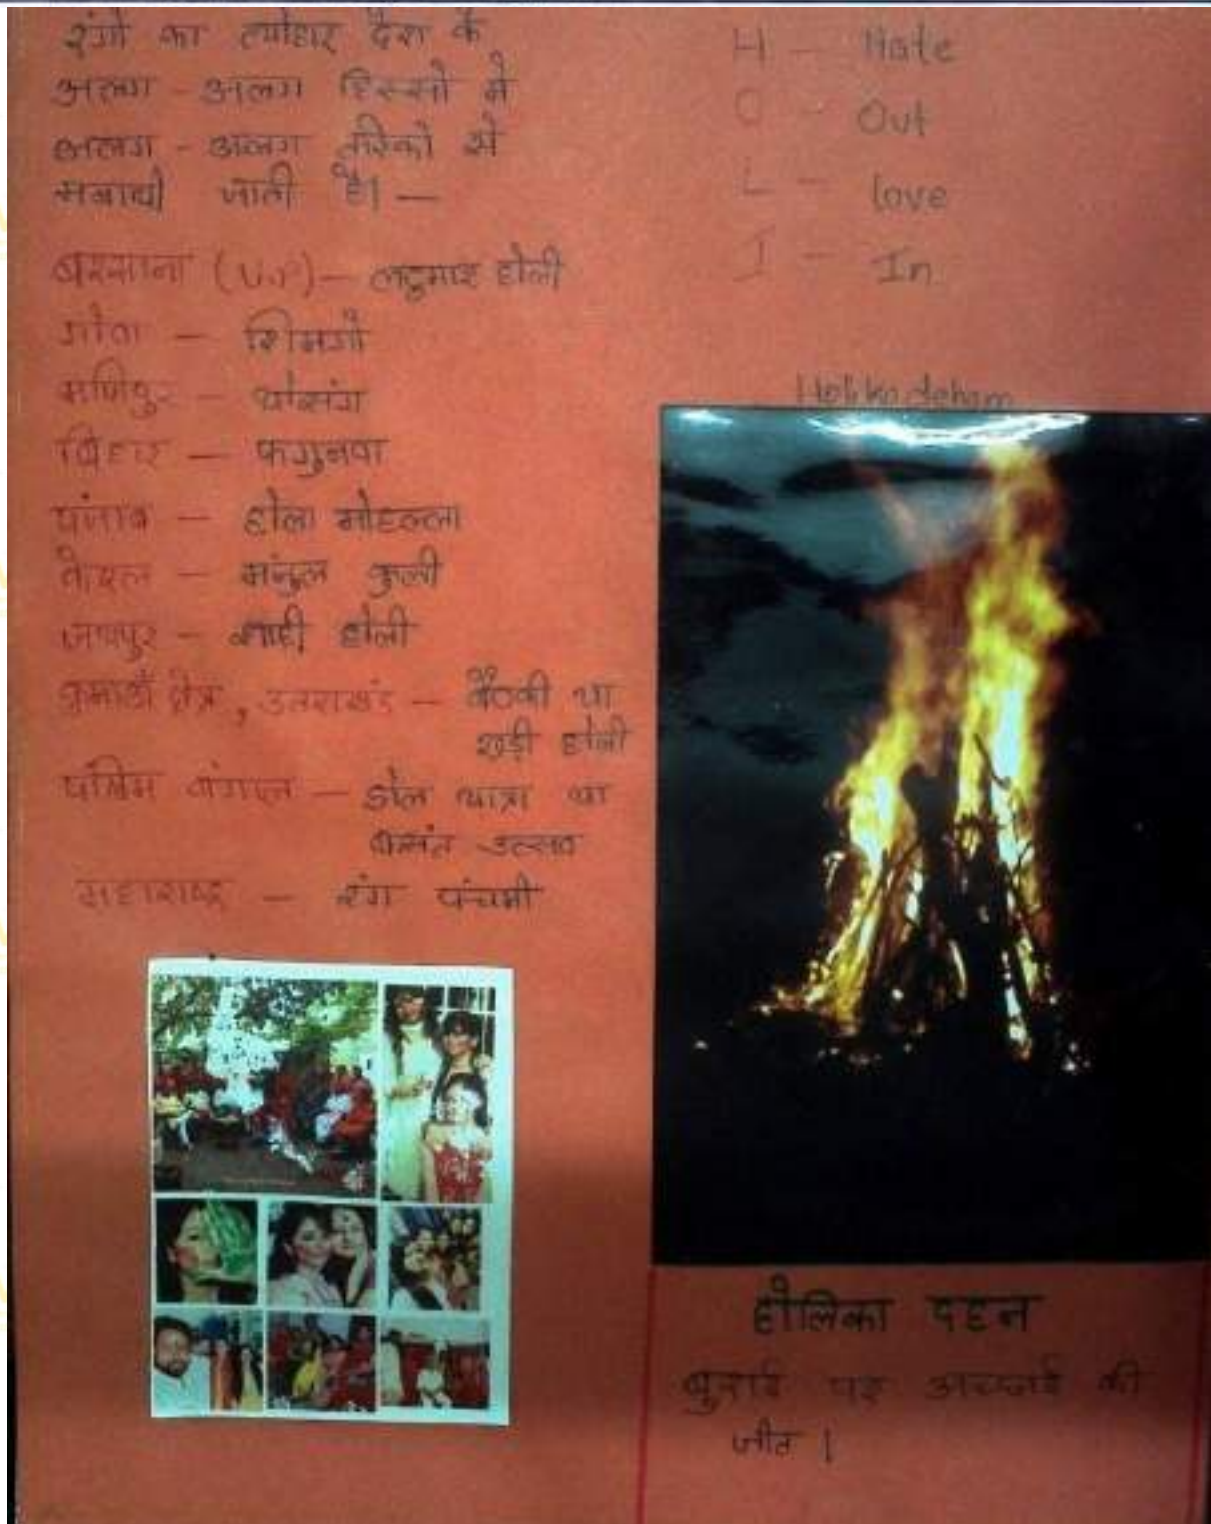 रंगो का त्योहार देश के
अलग - अलग हिस्सो मे
अलग - अलग तरिको से
मनायी जाती है। —
बरसाना (U.P) — लट्ठमार होली
गोवा — शिमगो
मणिपुर — योसंग
बिहार — फगुनवा
पंजाब — होला मोहल्ला
केरल — मंजुल कुली
जयपुर — होली
कुमाऊँ क्षेत्र, उतराखंड — बैठकी या
खड़ी होली
पश्चिम बंगाल — डोल यात्रा या
बसंत उत्सव
महाराष्ट्र — रंग पंचमी
H — Hate
O — Out
L — love
I — In
Holika deham
होलिका दहन
बुराई पर अच्छाई की
जीत ।